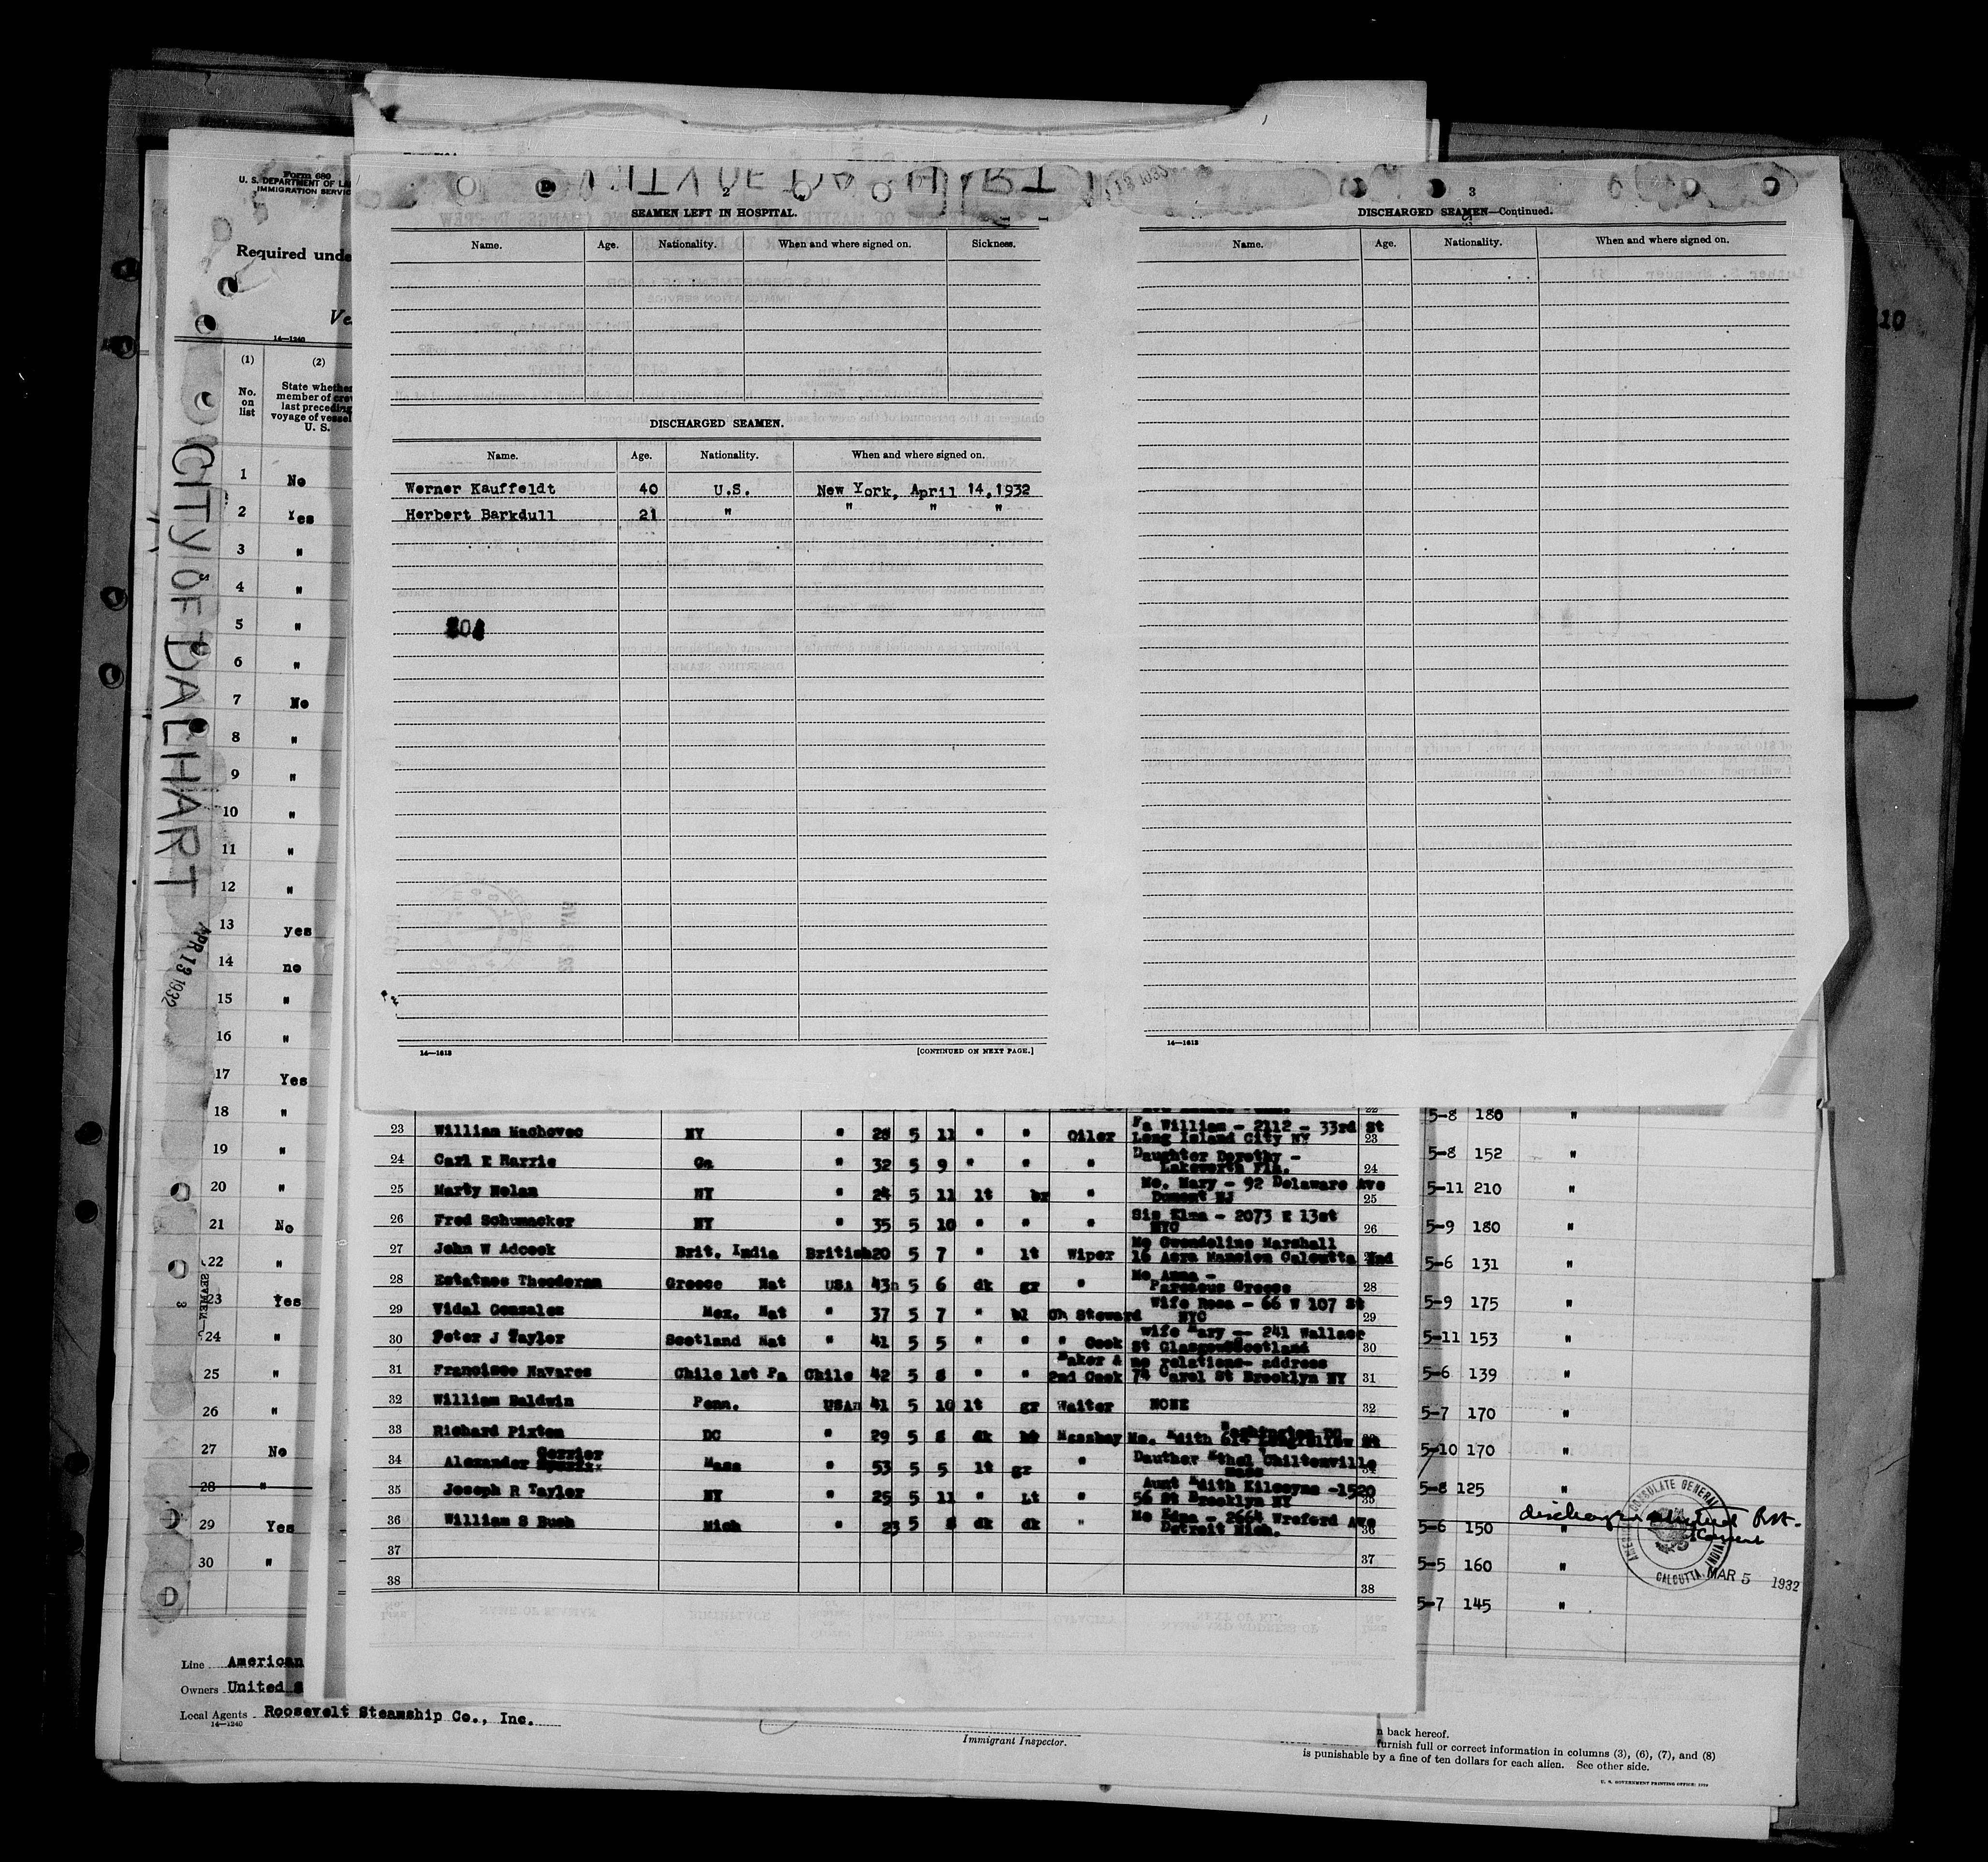 Form 680
U. S. DEPARTMENT OF LA
IMMIGRATION SERVIC
Required unde
Ve
14—1240
(1) (2)
No. on list
State whether
member of crew
last preceding
voyage of vessel
U. S.
1 No
2 Yes
3 "
4 "
5 "
6 "
7 No
8 "
9 "
10 "
11 "
12 "
13 yes
14 no
15 "
16 "
17 Yes
18 "
19 "
20 "
21 No
22 "
23 Yes
24 "
25 "
26 "
27 No
28 "
29 Yes
30 "
CITY OF DALHART
APR 13 1932
Line American
Owners United S
Local Agents Roosevelt Steamship Co., Inc.
14—1240
2
SEAMEN LEFT IN HOSPITAL.
Name. Age. Nationality. When and where signed on. Sickness.
DISCHARGED SEAMEN.
Name. Age. Nationality. When and where signed on.
Werner Kauffeldt 40 U.S. New York, April 14, 1932
Herbert Barkdull 21 " " " "
14—1613 [CONTINUED ON NEXT PAGE.]
3
DISCHARGED SEAMEN—Continued.
Name. Age. Nationality. When and where signed on.
14—1613
10
23 William Machovec NY " 28 5 11 " " Oiler Fa William - 2112 - 33rd St
Long Island City NY 23
24 Carl E Harris Ga " 32 5 9 " " " Daughter Dorothy -
Lakeworth Fla. 24
25 Marty Nolan NY " 24 5 11 lt br " Mo. Mary - 92 Delaware Ave
Dumont NJ 25
26 Fred Schumacker NY " 35 5 10 " " " Sis Elma - 2073 E 13st
NYC 26
27 John W Adcock Brit. India British 20 5 7 " lt Wiper Mo Gwendoline Marshall
16 Acra Mansion Calcutta Ind
28 Estatnos Theodoran Greece Nat USA 43 5 6 dk gr " Mo Anna -
Greece 28
29 Vidal Gonzales Mex. Nat " 37 5 7 " bl Ch Steward Wife Rosa - 66 W 107 St
NYC 29
30 Peter J Taylor Scotland Nat " 41 5 5 " " " Cook wife Mary -- 241 Wallace
St Glasgow Scotland 30
31 Francisco Navares Chile 1st Pa Chile 42 5 8 " " Baker & 2nd Cook no relations- address
74 Carol St Brooklyn NY 31
32 William Baldwin Penn. USA 41 5 10 lt gr Waiter NONE 32
33 Richard Pixton DC " 29 5 8 dk Messboy Mo. Edith Longfellow St
Washington DC
34 Alexander Gerrier Mass " 53 5 5 lt gr " Dauther Ethel Chiltonville
Mass
35 Joseph R Taylor NY " 25 5 11 " Lt " Aunt Edith Kilcoyne -1520
56 St Brooklyn NY 35
36 William S Bush Mich " 23 5 8 dk dk " Mo Edna - 2664 Wreford Ave
Detroit Mich. 36
37 37
38 38
5-8 180 "
5-8 152 "
5-11 210 "
5-9 180 "
5-6 131 "
5-9 175 "
5-11 153 "
5-6 139 "
5-7 170 "
5-10 170 "
5-8 125 "
5-6 150 "
5-5 160 "
5-7 145 "
AMERICAN CONSULATE GENERAL
CALCUTTA, INDIA
MAR 5 1932
Immigrant Inspector.
n back hereof.
furnish full or correct information in columns (3), (6), (7), and (8)
is punishable by a fine of ten dollars for each alien. See other side.
U. S. GOVERNMENT PRINTING OFFICE: 1929